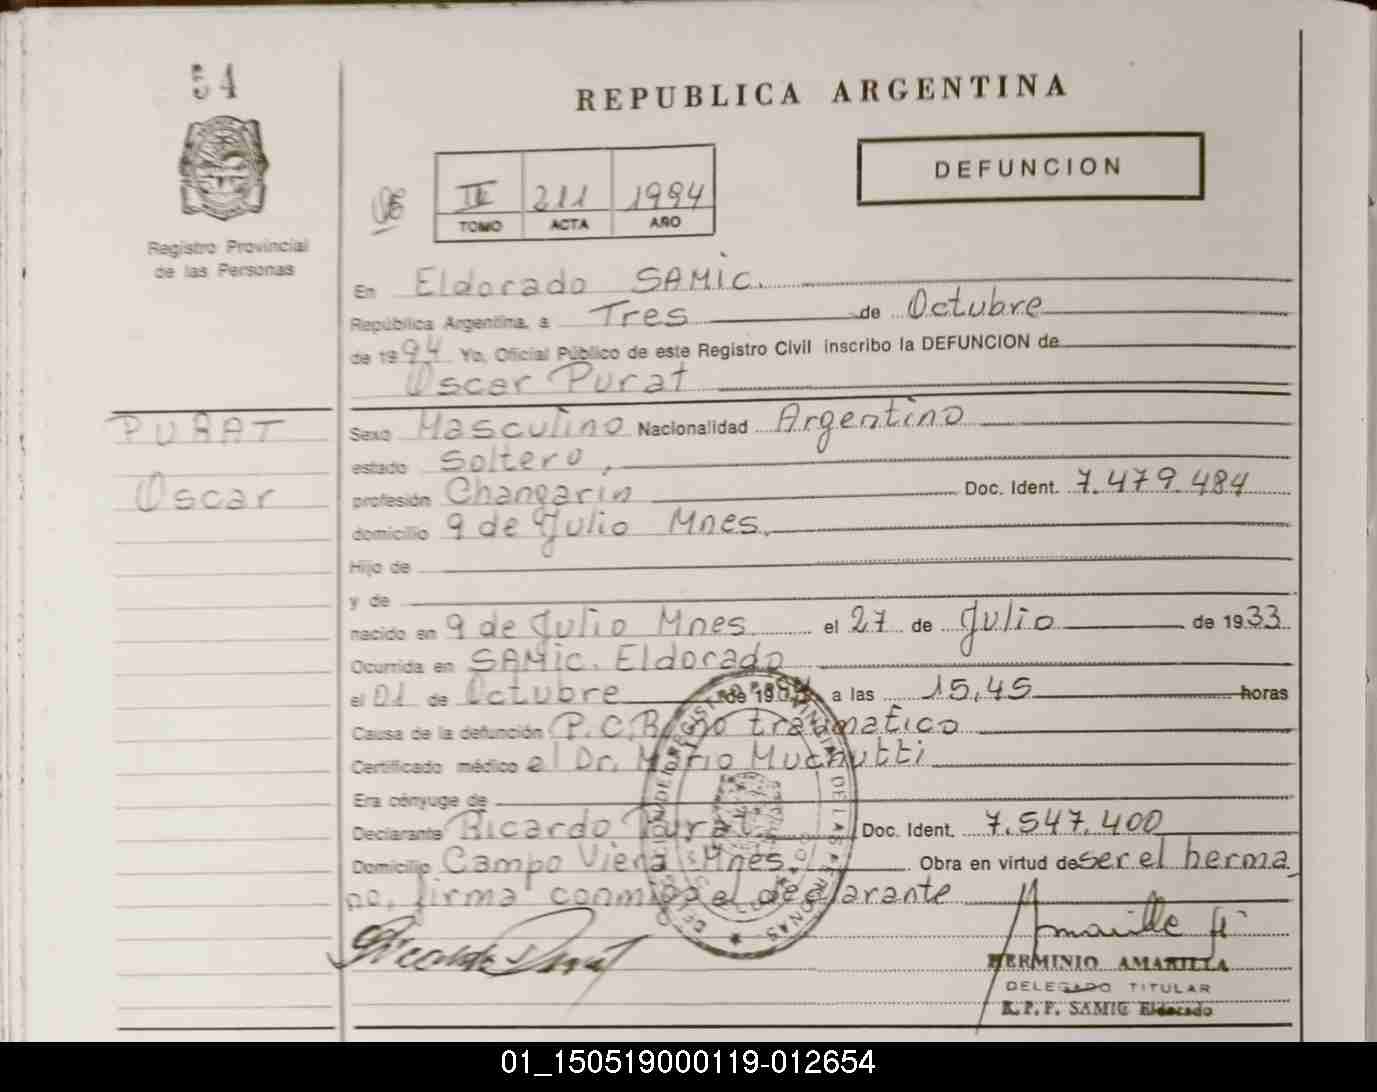 54
REPUBLICA ARGENTINA
DEFUNCION
II 211 1994
TOMO ACTA AÑO
Registro Provincial
de las Personas
En Eldorado SAMIC.
República Argentina, a Tres de Octubre
de 1994 Yo, Oficial Público de este Registro Civil inscribo la DEFUNCION de
Oscar Purat
PURAT
Oscar
Sexo Masculino Nacionalidad Argentino
estado Soltero,
profesión Changarin Doc. Ident. 7.479.484
domicilio 9 de Julio Mnes,
Hijo de
y de
nacido en 9 de Julio Mnes el 27 de Julio de 1933
Ocurrida en SAMIC. Eldorado
el 01 de Octubre de 19 a las 15,45 horas
Causa de la defunción P.C.R. no traumatico
Certificado médico el Dr. Mario Muchutti
Era cónyuge de
Declarante Ricardo Purat Doc. Ident. 7.547.400
Domicilio Campo Viera Mnes. Obra en virtud de ser el herma
no, firma conmigo el declarante
HERMINIO AMARILLA
DELEGADO TITULAR
R.P.P. SAMIC Eldorado
01_150519000119-012654